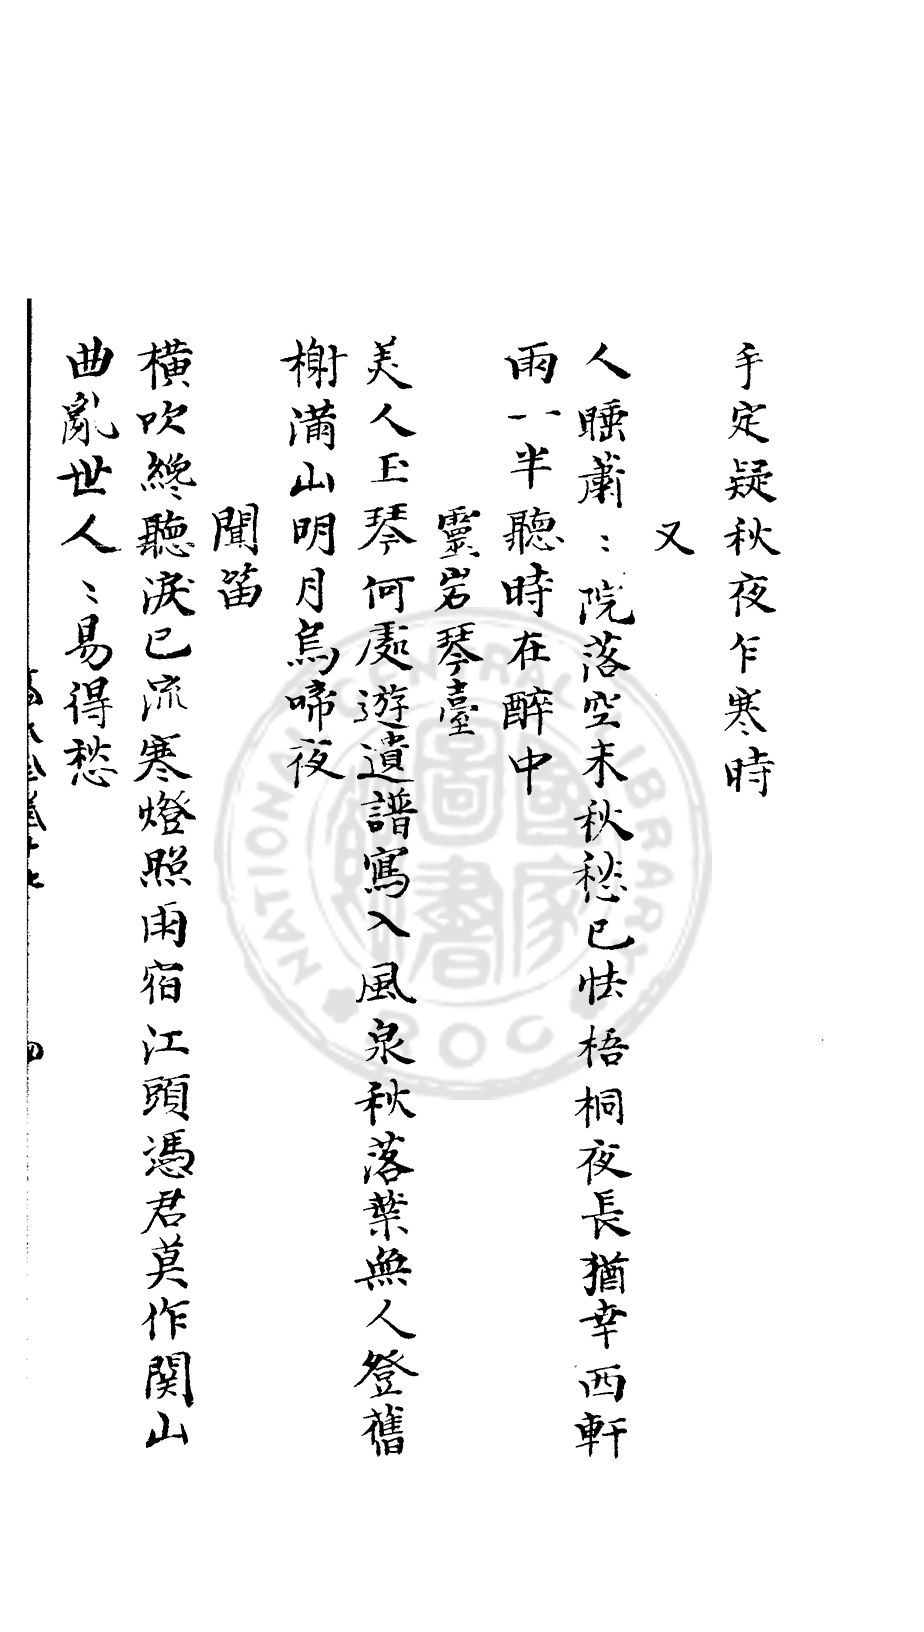 手定疑秋夜乍寒時
又
人睡蕭〻院落空未秋愁已怯梧桐夜長猶幸西軒
雨一半聽時在醉中
靈岩琴臺
美人玉琴何處遊遺譜寫入風泉秋落葉無人登舊
榭滿山明月烏啼夜
聞笛
橫吹纔聽淚已流寒燈照雨宿江頭憑君莫作関山
曲亂世人〻易得愁
四
NATIONAL CENTRAL LIBRARY
ROC
國家圖書館